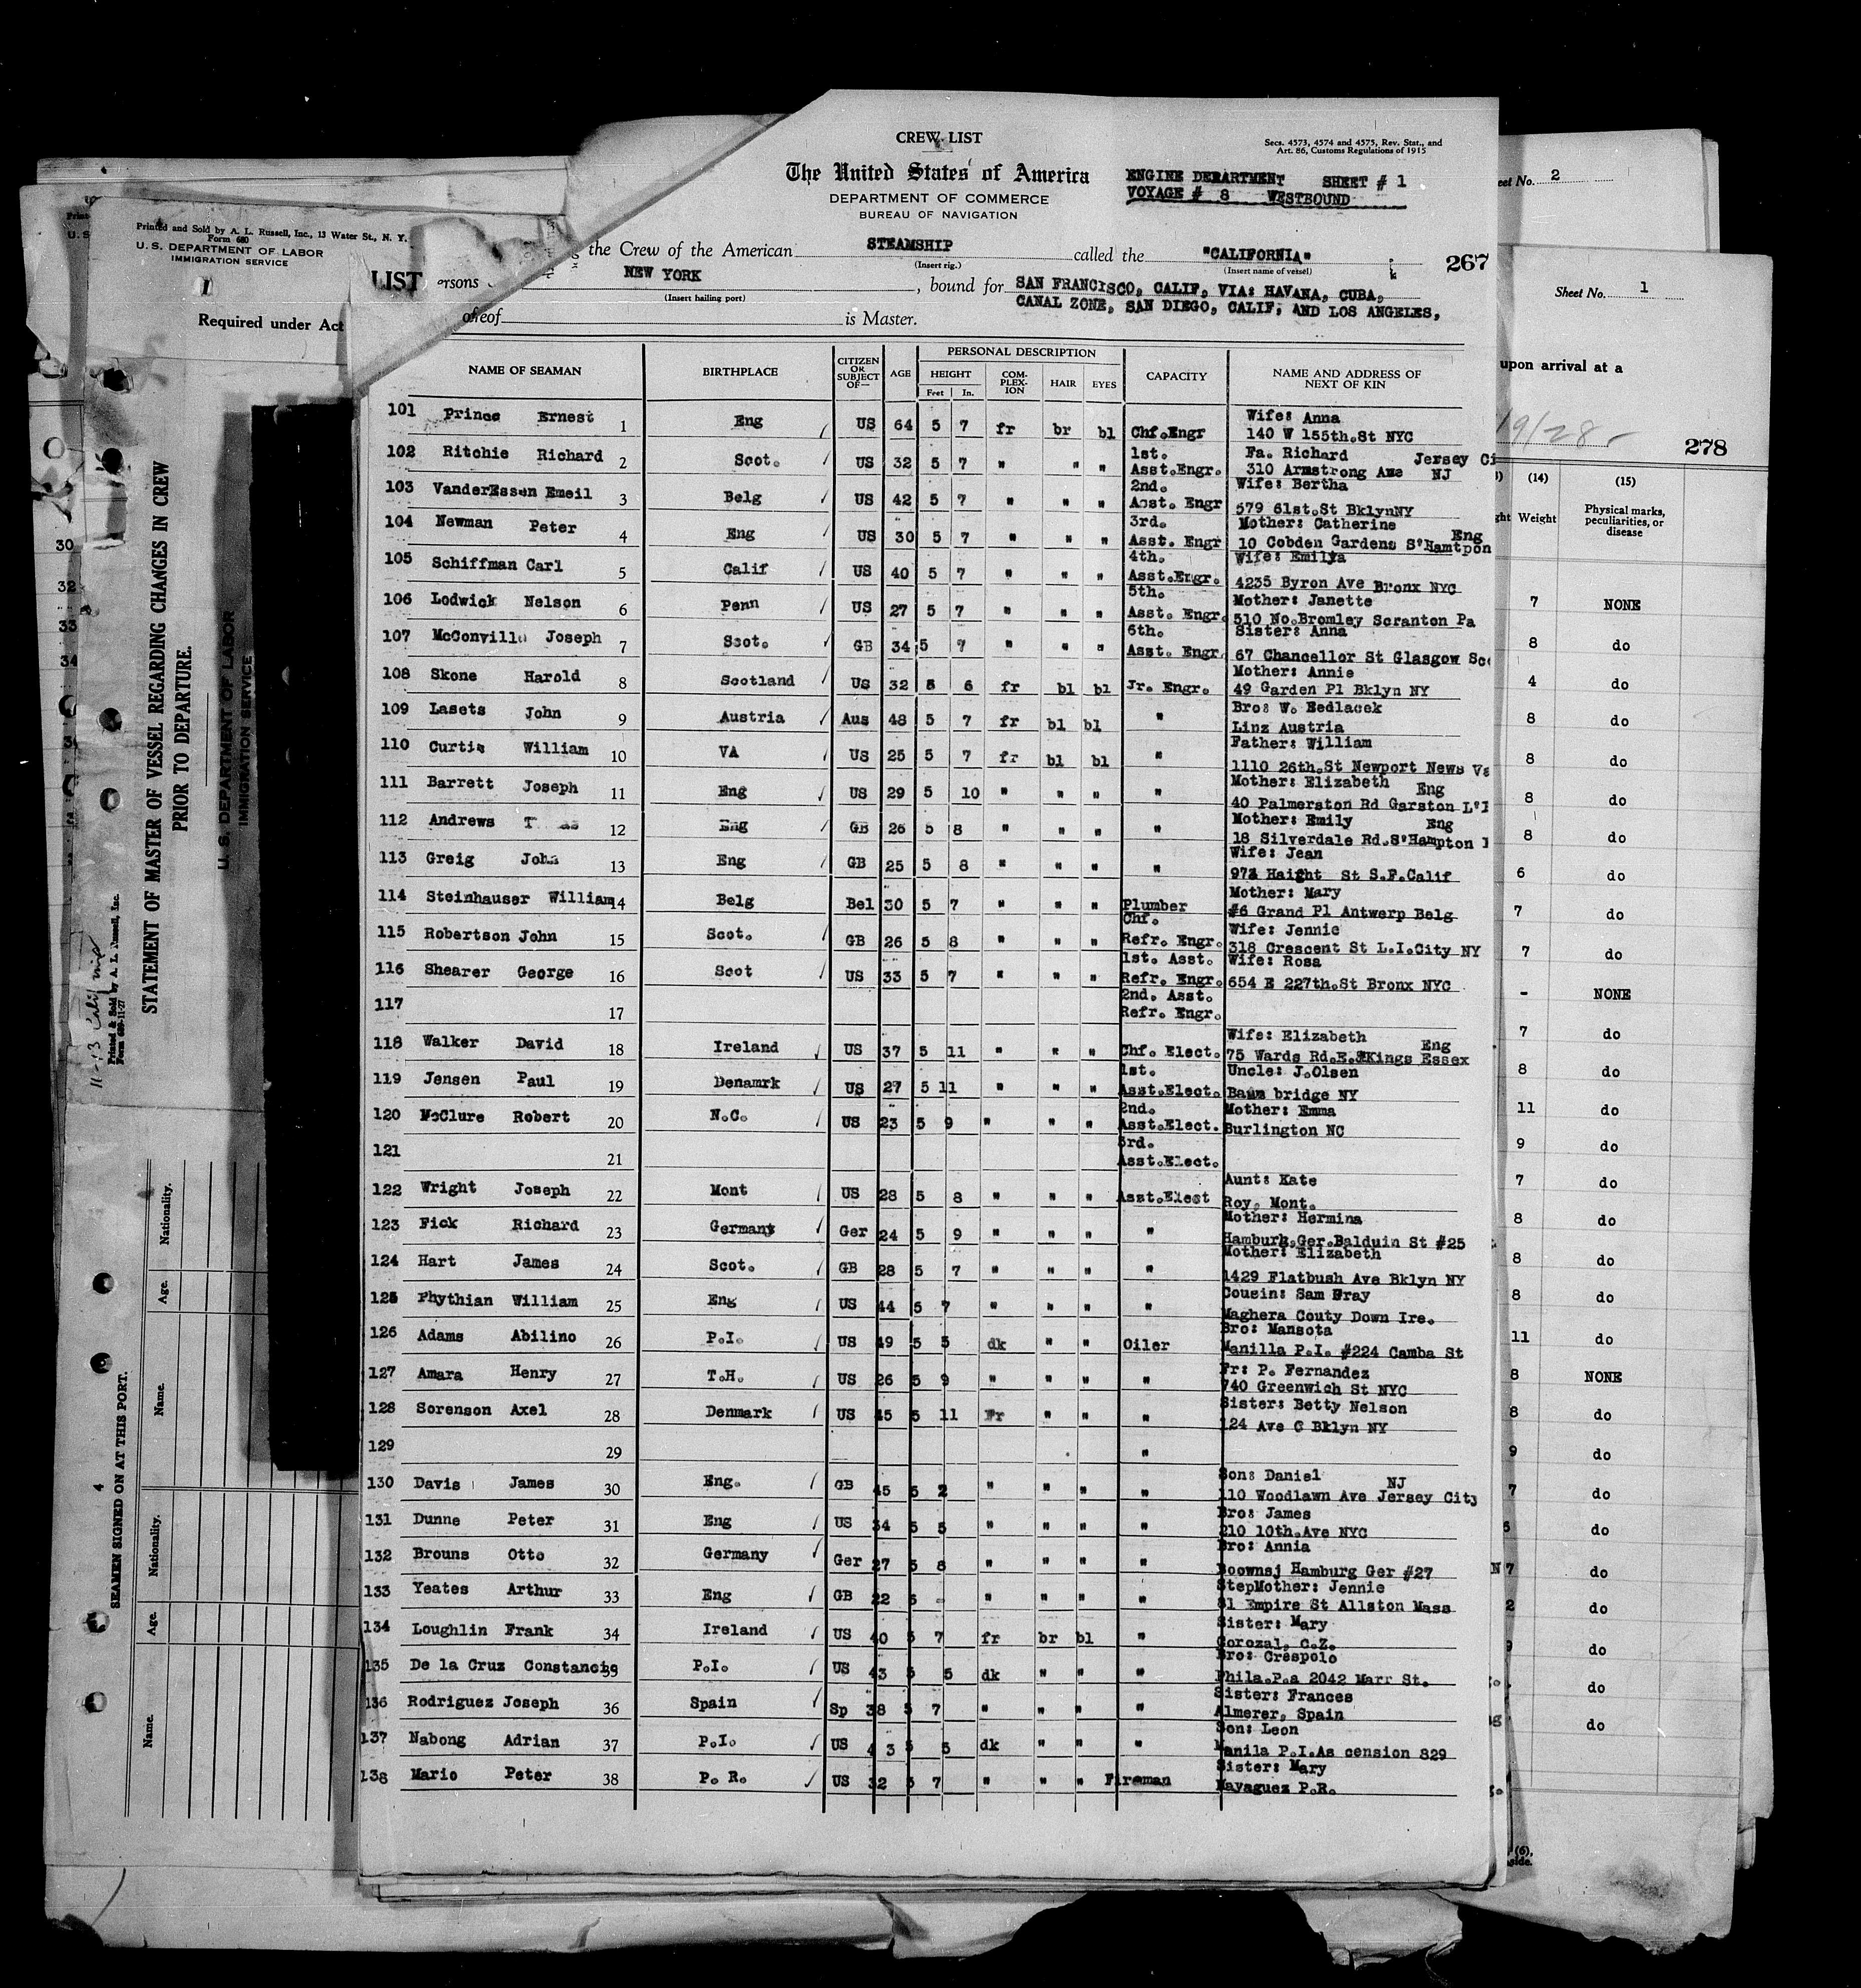 CREW LIST
Secs. 4573, 4574 and 4575, Rev. Stat., and
Art. 86, Customs Regulations of 1915
The United States of America
DEPARTMENT OF COMMERCE
BUREAU OF NAVIGATION
ENGINE DEPARTMENT SHEET # 1
VOYAGE # 8 WESTBOUND
LIST
ersons
the Crew of the American STEAMSHIP called the "CALIFORNIA"
(Insert rig.) (Insert name of vessel)
267
NEW YORK , bound for SAN FRANCISCO, CALIF, VIA: HAVANA, CUBA,
(Insert hailing port)
CANAL ZONE, SAN DIEGO, CALIF, AND LOS ANGELES,
is Master.
NAME OF SEAMAN BIRTHPLACE CITIZEN OR SUBJECT OF— AGE PERSONAL DESCRIPTION HEIGHT Feet In. COM-PLEX-ION HAIR EYES CAPACITY NAME AND ADDRESS OF NEXT OF KIN
101 Prince Ernest 1 Eng US 64 5 7 fr br bl Chf.Engr Wife: Anna
140 W 155th.St NYC
102 Ritchie Richard 2 Scot. US 32 5 7 " " " 1st. Asst.Engr. Fa. Richard Jersey Ci
310 Armstrong Ave NJ
103 VanderEssen Emeil 3 Belg US 42 5 7 " " " 2nd. Asst. Engr Wife: Bertha
579 61st.St BklynNY
104 Newman Peter 4 Eng US 30 5 7 " " " 3rd. Asst. Engr Mother: Catherine Eng
10 Cobden Gardens S'Hamtpon
105 Schiffman Carl 5 Calif US 40 5 7 " " " 4th. Asst.Engr. Wife: Emilya
4235 Byron Ave Bronx NYC
106 Lodwick Nelson 6 Penn US 27 5 7 " " " 5th. Asst. Engr. Mother: Janette
510 No.Bromley Scranton Pa
107 McConville Joseph 7 Scot. GB 34 5 7 " " " 6th. Asst. Engr. Sister: Anna
67 Chancellor St Glasgow Sc
108 Skone Harold 8 Scotland US 32 5 6 fr bl bl Jr. Engr. Mother: Annie
49 Garden Pl Bklyn NY
109 Lasets John 9 Austria Aus 48 5 7 fr bl bl " Bro: W. Sedlacek
Linz Austria
110 Curtis William 10 VA US 25 5 7 fr bl bl " Father: William
1110 26th.St Newport News Va
111 Barrett Joseph 11 Eng US 29 5 10 " " " " Mother: Elizabeth Eng
40 Palmerston Rd Garston L'
112 Andrews 12 Eng GB 26 5 8 " " " " Mother: Emily Eng
18 Silverdale Rd.S'Hampton
113 Greig John 13 Eng GB 25 5 8 " " " " Wife: Jean
Haight St S.F.Calif
114 Steinhauser William 14 Belg Bel 30 5 7 " " " Plumber Mother: Mary
#6 Grand Pl Antwerp Belg
115 Robertson John 15 Scot. GB 26 5 8 " " " Chf. Refr. Engr. Wife: Jennie
318 Crescent St L.I.City NY
116 Shearer George 16 Scot US 33 5 7 " " " 1st. Asst. Refr. Engr. Wife: Rosa
654 E 227th.St Bronx NYC
117 17 2nd. Asst. Refr. Engr.
118 Walker David 18 Ireland US 37 5 11 " " " Chf. Elect. Wife: Elizabeth Eng
75 Wards Rd.E. Kings Essex
119 Jensen Paul 19 Denamrk US 27 5 11 " " " 1st. Asst.Elect. Uncle: J.Olsen
bridge NY
120 McClure Robert 20 N.C. US 23 5 9 " " " 2nd. Asst.Elect. Mother: Emma
Burlington NC
121 21 3rd. Asst.Elect.
122 Wright Joseph 22 Mont US 28 5 8 " " " Asst.Elect Aunt: Kate
Roy, Mont.
123 Fick Richard 23 Germany Ger 24 5 9 " " " " Mother: Hermina
Hamburh,Ger.Balduin St #25
124 Hart James 24 Scot. GB 28 5 7 " " " " Mother: Elizabeth
1429 Flatbush Ave Bklyn NY
125 Phythian William 25 Eng US 44 5 7 " " " " Cousin: Sam Bray
Maghera Couty Down Ire.
126 Adams Abilino 26 P.I. US 49 5 5 dk " " Oiler Bro: Mansota
Manilla P.I. #224 Camba St
127 Amara Henry 27 T.H. US 26 5 9 " " " " Fr: P. Fernandez
740 Greenwich St NYC
128 Sorenson Axel 28 Denmark US 45 5 11 Fr " " " Sister: Betty Nelson
124 Ave C Bklyn NY
129 29 "
130 Davis James 30 Eng. GB 45 5 2 " " " " Son: Daniel NJ
110 Woodlawn Ave Jersey City
131 Dunne Peter 31 Eng US 34 5 5 " " " " Bro: James
210 10th.Ave NYC
132 Brouns Otto 32 Germany Ger 27 5 8 " " " " Bro: Annia
Boownsj Hamburg Ger #27
133 Yeates Arthur 33 Eng GB 22 6 - " " " " StepMother: Jennie
81 Empire St Allston Mass
134 Loughlin Frank 34 Ireland US 40 5 7 fr br bl " Sister: Mary
Corozal, C.Z.
135 De la Cruz Constancio 35 P.I. US 43 5 5 dk " " " Bro: Crespolo
Phila.P.a 2042 Marr St.
136 Rodriguez Joseph 36 Spain Sp 38 5 7 " " " " Sister: Frances
Almerer, Spain
137 Nabong Adrian 37 P.I. US 43 5 5 dk " " " Son: Leon
Manila P.I.As cension 829
138 Mario Peter 38 P. R. US 32 5 7 " " " Fireman Sister: Mary
Mayaguez P.R.
Printed and Sold by A. L. Russell, Inc., 13 Water St., N. Y.
Form 680
U. S. DEPARTMENT OF LABOR
IMMIGRATION SERVICE
1
Required under Act
30
32
33
34
STATEMENT OF MASTER OF VESSEL REGARDING CHANGES IN CREW
PRIOR TO DEPARTURE.
U. S. DEPARTMENT OF LABOR
IMMIGRATION SERVICE
Printed & Sold by A. L. Russell, Inc.
Form 689-11-27
4 SEAMEN SIGNED ON AT THIS PORT.
Name. Age. Nationality. Name. Age. Nationality.
eet No. 2
Sheet No. 1
upon arrival at a
19/28
278
(14) (15)
ght Weight Physical marks, peculiarities, or disease
7 NONE
8 do
4 do
8 do
8 do
8 do
8 do
6 do
7 do
7 do
- NONE
7 do
8 do
11 do
9 do
7 do
8 do
8 do
8 do
11 do
8 NONE
8 do
9 do
7 do
do
7 do
do
do
do
do
(6),
side.